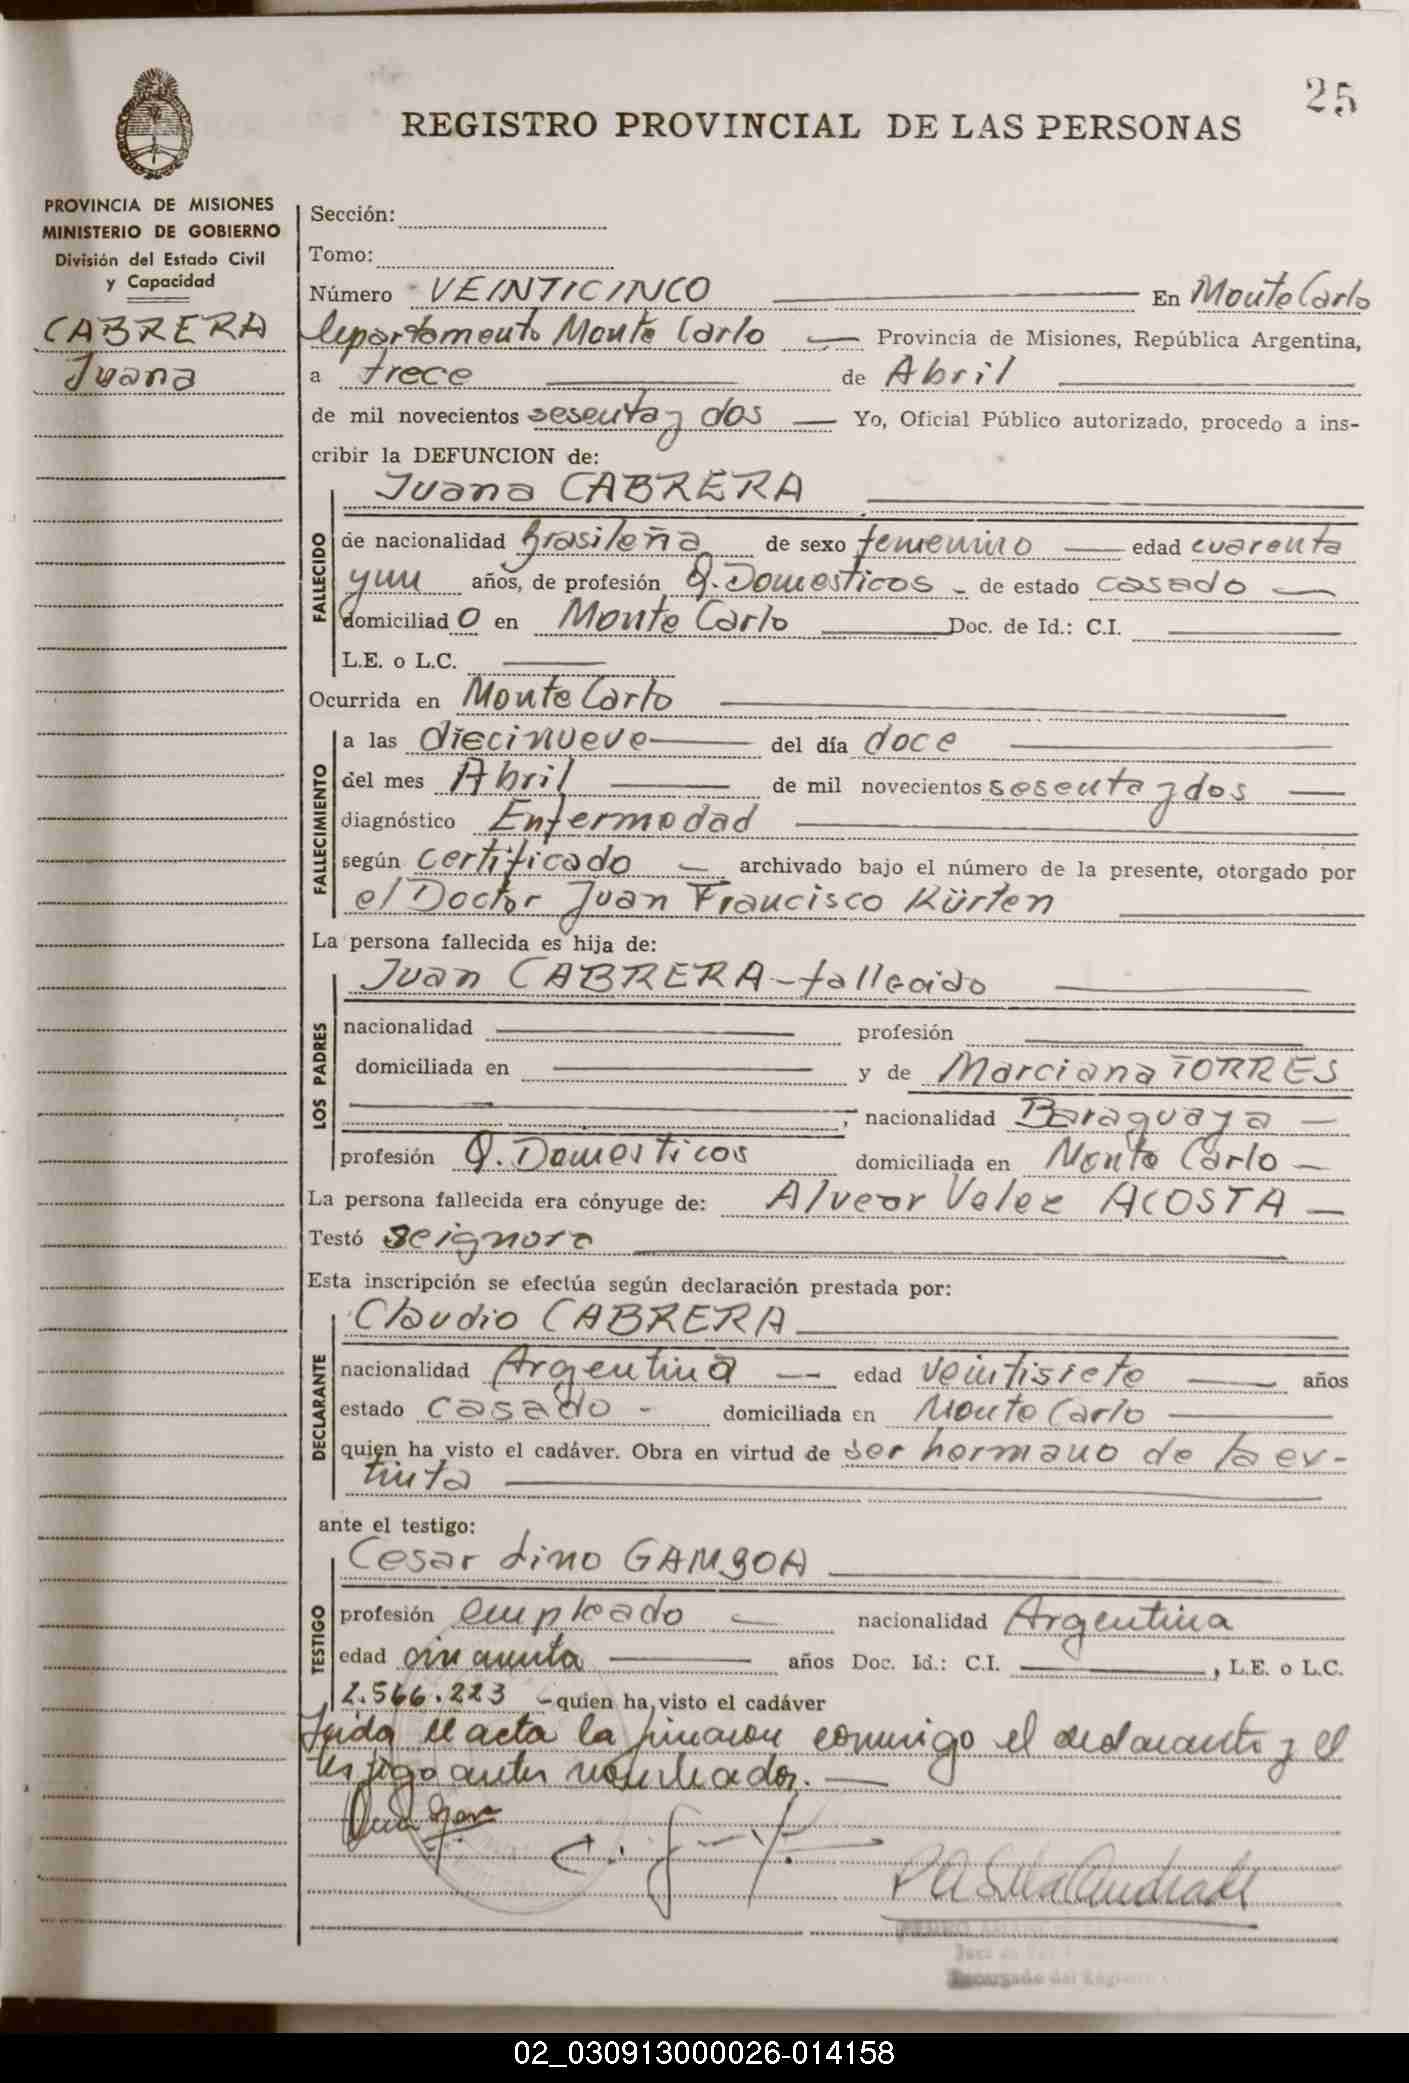 25
REGISTRO PROVINCIAL DE LAS PERSONAS
PROVINCIA DE MISIONES
MINISTERIO DE GOBIERNO
División del Estado Civil
y Capacidad
CABRERA
Juana
Sección:
Tomo:
Número VEINTICINCO En Monte Carlo
Departamento Monte Carlo Provincia de Misiones, República Argentina,
a trece de Abril
de mil novecientos sesenta y dos Yo, Oficial Público autorizado, procedo a ins-
cribir la DEFUNCION de:
Juana CABRERA
FALLECIDO
de nacionalidad brasileña de sexo femenino edad cuarenta
y un años, de profesión Q. Domesticos de estado casado
domiciliado en Monte Carlo Doc. de Id.: C.I.
L.E. o L.C.
Ocurrida en Monte Carlo
FALLECIMIENTO
a las diecinueve del día doce
del mes Abril de mil novecientos sesenta y dos
diagnóstico Enfermedad
según certificado archivado bajo el número de la presente, otorgado por
el Doctor Juan Francisco Kürten
La persona fallecida es hija de:
Juan CABRERA - fallecido
LOS PADRES
nacionalidad profesión
domiciliada en y de Marciana TORRES
, nacionalidad Paraguaya
profesión Q. Domesticos domiciliada en Monte Carlo
La persona fallecida era cónyuge de: Alvear Velez ACOSTA
Testó se ignora
Esta inscripción se efectúa según declaración prestada por:
Claudio CABRERA
DECLARANTE
nacionalidad Argentina edad veintisiete años
estado casado - domiciliada en Monte Carlo
quien ha visto el cadáver. Obra en virtud de ser hermano de la ex-
tinta
ante el testigo:
Cesar Lino GAMBOA
TESTIGO
profesión empleado nacionalidad Argentina
edad cincuenta años Doc. Id.: C.I. , L.E. o L.C.
2.566.223 - quien ha visto el cadáver
Leída el acta la firmaron conmigo el declarante y el
testigo antes nombrados.
Encargado del Registro
02_030913000026-014158